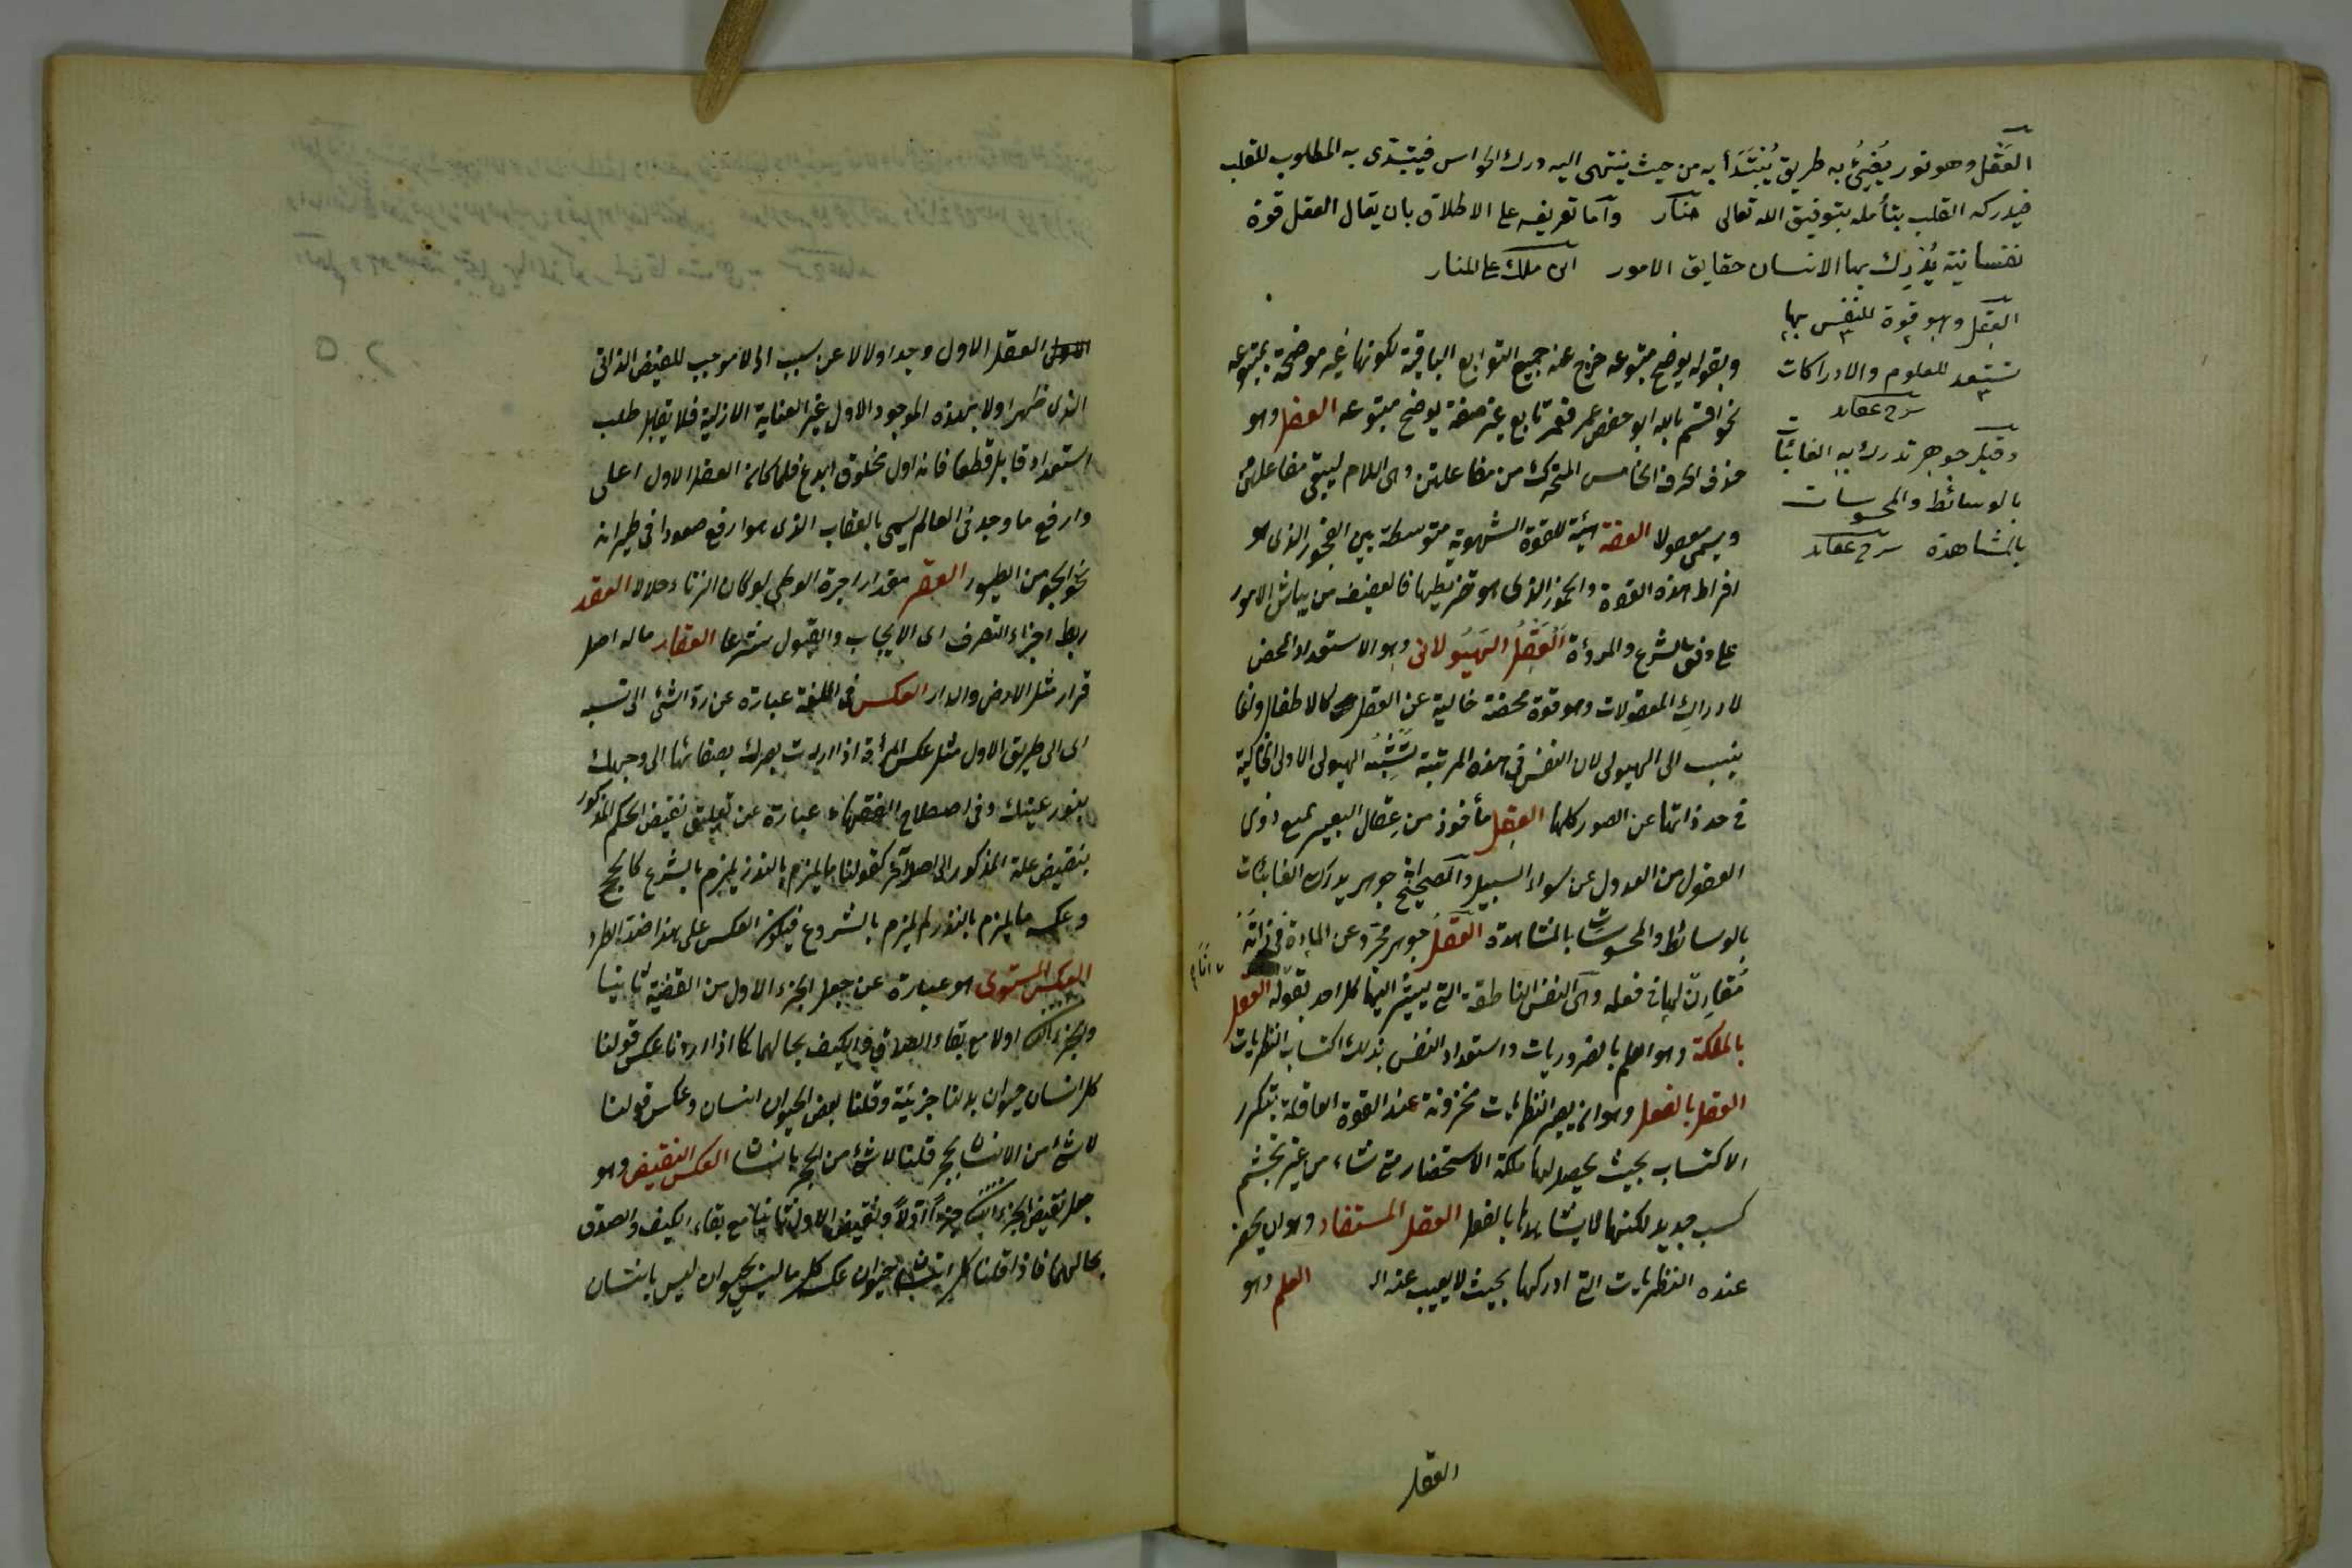 العقل وهو نور يُضِيئُ به طريق يُبْتَدَأ به من حيث ينتهى اليه درك الحواس فيبتدى به المطلوب للقلب
فيدركه القلب بتأمله بتوفيق الله تعالى منار واما تعريفه على الاطلاق بان يقال العقل قوة
نفسانية يُدْرِك بها الانسان حقايق الامور ابن ملك على المنار
العقل وهو قوة للنفس بها
تستعد للعلوم والادراكات
شرح عقائد
وقيل جوهر تدرك به الغائبات
بالوسائط والمحسوسات
بالمشاهدة شرح عقائد
وبقوله يوضح متبوعه خرج عنه جميع التوابع الباقية لكونها غير موضحة لمتبوعه
نحو اقسم بالله ابو حفص عمر فعمر تابع غير صفة يوضح متبوعه العضل وهو
حذف الحرف الخامس المتحرك من مفاعلتن وهى اللام ليبقى مفاعلتن
ويسمى معصولا العفة هيئة للقوة الشهوية متوسطة بين الفجور الذى هو
افراط هذه القوة والخمود الذى هو تفريطها فالعفيف من يباشر الامور
على وفق الشرع والمروءة العَقْلُ الهَيُولانى وهو الاستعداد المحض
لادراك المعقولات وهو قوة محضة خالية عن الفعل كما للاطفال وانما
ينسب الى الهيولى لان النفس فى هذه المرتبة تشبه الهيولى الاولى الخالية
فى حد ذاتها عن الصور كلها العقل مأخوذ من عقال البعير يمنع ذوى
العقول من العدول عن سواء السبيل والصحيح انه جوهر يدرك الغائبات
بالوسائط والمحسوسات بالمشاهدة العقل جوهر مجرد عن المادة فى ذاته
مقارن لها فى فعله وهى النفس الناطقة التى يشير اليها كل احد بقوله انا العقل
بالملكة وهو العلم بالضروريات واستعداد النفس بذلك اكتساب النظريات
العقل بالفعل وهو ان يصير النظريات مخزونة عند القوة العاقلة بتكرر
الاكتساب بحيث يحصل لها ملكة الاستحضار متى شاء من غير تجشم
كسب جديد لكنها لا يشاهدها بالفعل العقل المستفاد وهو ان يحضر
عنده النظريات التى ادركها بحيث لا يغيب عنه العلم وهو
العقل
العقل الاول وجد اولا لا عن سبب اذ لا موجب للفيض الذاتى
الذى ظهر اولا بهذه الموجود الاول غير العناية الازلية فلا يقابله طلب
استعداد قابل قطعا فانه اول مخلوق ابدع فلما كان العقل الاول اعلى
وارفع ما وجد فى العالم يسمى بالعقاب الذى هو ارفع صعودا فى طيرانه
نحو الجو من الطيور العقر مقدار اجرة الوطئ لو كان الزناء حلالا العقد
ربط اجزاء التصرف اى الايجاب والقبول شرعا العقار ماله اصل
قرار مثل الارض والدار العكس فى اللغة عبارة عن رد الشئ الى
اى الى طريق الاول مثل عكس المرأة اذا ردت بصرك بصفائها الى وجهك
بنور عينك وفى اصطلاح الفقهاء عبارة عن تعليق نقيض الحكم المذكور
بنقيض علة المذكور الى اصل آخر كقولنا ما يلزم بالنذر يلزم بالشرع كالحج
وعكسه ما لم يلزم بالنذر لم يلزم بالشروع فيكون العكس على هذا ضد الطرد
العكس المستوى هو عبارة عن جعل الجزء الاول من القضية ثانيا
والجزء الثانى اولا مع بقاء الصدق والكيف بحالهما كما اذا اردنا عكس قولنا
كل انسان حيوان بدلنا جزئية وقلنا بعض الحيوان انسان وعكس قولنا
لا شئ من الانسان بحجر قلنا لا شئ من الحجر بانسان العكس النقيض وهو
جعل نقيض الجزء الثانى جزءاً اولاً ونقيض الاول ثانيا مع بقاء الكيف والصدق
بحالهما فاذا قلنا كل انسان حيوان عكسه كل ما ليس بحيوان ليس بانسان